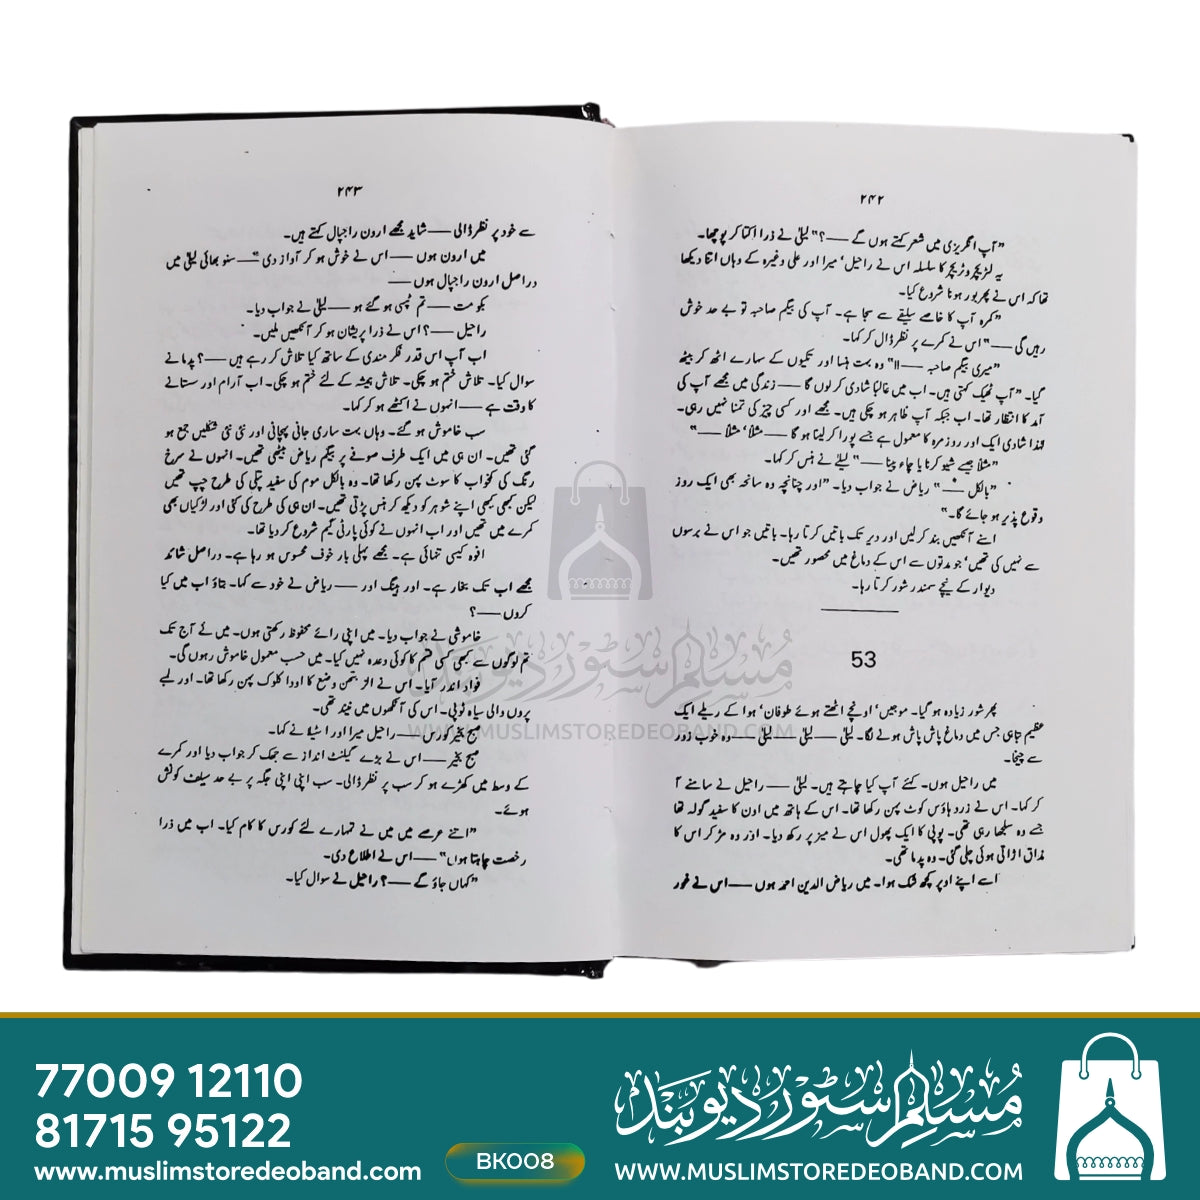 ۲۴۲
"آپ انگریزی میں شعر کہتے ہوں گے ——؟" لیلیٰ نے ذرا اکتا کر پوچھا۔
یہ لٹریچر وٹریچر کا سلسلہ اس نے راحیل' میرا اور علی وغیرہ کے وہاں اتنا دیکھا
تھا کہ اس نے پھر بور ہونا شروع کیا۔
"کمرہ آپ کا خاصے سلیقے سے سجا ہے۔ آپ کی بیگم صاحبہ تو بے حد خوش
رہیں گی ——" اس نے کمرے پر نظر ڈال کر کہا۔
"میری بیگم صاحبہ ——!!" وہ بہت ہنسا اور تکیوں کے سہارے اٹھ کر بیٹھ
گیا۔ "آپ ٹھیک کہتی ہیں۔ اب میں غالبًا شادی کر لوں گا —— زندگی میں مجھے آپ کی
آمد کا انتظار تھا۔ اب جبکہ آپ ظاہر ہو چکی ہیں۔ مجھے اور کسی چیز کی تمنا نہیں رہی۔
لہٰذا شادی ایک اور روزمرہ کا معمول ہے جسے پورا کر لینا ہو گا —— مثلًا' مثلًا ——"
"مثلًا جیسے شیو کرنا یا چاء پینا ——" لیلیٰ نے ہنس کر کہا۔
"بالکل ——" ریاض نے جواب دیا۔ "اور چنانچہ وہ سانحہ بھی ایک روز
وقوع پذیر ہو جائے گا۔"
اسنے آنکھیں بند کر لیں اور دیر تک باتیں کرتا رہا۔ باتیں جو اس نے برسوں
سے نہیں کی تھیں' جو مدتوں سے اس کے دماغ میں محصور تھیں۔
دیوار کے نیچے سمندر شور کرتا رہا۔
53
پھر شور زیادہ ہو گیا۔ موجیں' اونچے اٹھتے ہوئے طوفان' ہوا کے ریلے ایک
عظیم تباہی جس میں دماغ پاش پاش ہونے لگا۔ لیلیٰ —— لیلیٰ —— لیلیٰ —— وہ خوب زور
سے چیخا۔
میں راحیل ہوں۔ کہئے آپ کیا چاہتے ہیں۔ لیلیٰ —— راحیل نے سامنے آ
کر کہا۔ اس نے زرد ہاؤس کوٹ پہن رکھا تھا۔ اس کے ہاتھ میں اون کا سفید گولہ تھا
جسے وہ سلجھا رہی تھی۔ پوپی کا ایک پھول اس نے میز پر رکھ دیا۔ اور وہ مڑ کر اس کا
مذاق اڑاتی ہوئی چلی گئی۔ وہ پدما تھی۔
اسے اپنے اوپر کچھ شک ہوا۔ میں ریاض الدین احمد ہوں —— اس نے غور
۲۴۳
سے خود پر نظر ڈالی —— شاید مجھے ارون راجپال کہتے ہیں۔
میں ارون ہوں —— اس نے خوش ہو کر آواز دی "—— سنو بھائی لیلیٰ میں
دراصل ارون راجپال ہوں ——
بکو مت —— تم ٹپسی ہو گئے ہو —— لیلیٰ نے جواب دیا۔
راحیل ——؟ اس نے ذرا پریشان ہو کر آنکھیں ملیں۔
اب آپ اس قدر فکر مندی کے ساتھ کیا تلاش کر رہے ہیں ——؟ پدما نے
سوال کیا۔ تلاش ختم ہو چکی۔ تلاش ہمیشہ کے لئے ختم ہو چکی۔ اب آرام اور سستانے
کا وقت ہے —— انہوں نے اکٹھے ہو کر کہا۔
سب خاموش ہو گئے۔ وہاں بہت ساری جانی پہچانی اور نئی نئی شکلیں جمع ہو
گئی تھیں۔ ان ہی میں ایک طرف صوفے پر بیگم ریاض بیٹھی تھیں۔ انہوں نے سرخ
رنگ کی کمخواب کا سوٹ پہن رکھا تھا۔ وہ بالکل موم کی سفید پتلی کی طرح چپ تھیں
لیکن کبھی کبھی اپنے شوہر کو دیکھ کر ہنس پڑتی تھیں۔ ان ہی کی طرح کی کئی اور لڑکیاں بھی
کمرے میں تھیں اور اب انہوں نے کوئی پارٹی گیم شروع کر دیا تھا۔
افوہ کیسی تنہائی ہے۔ مجھے پہلی بار خوف محسوس ہو رہا ہے۔ دراصل شائد
مجھے اب تک بخار ہے۔ اور ہینگ اور —— ریاض نے خود سے کہا۔ بتاؤ اب میں کیا
کروں ——؟
خاموشی نے جواب دیا۔ میں اپنی رائے محفوظ رکھتی ہوں۔ میں نے آج تک
تم لوگوں سے کبھی کسی قسم کا کوئی وعدہ نہیں کیا۔ میں حسب معمول خاموش رہوں گی۔
فواد اندر آیا۔ اس نے الزبتھن وضع کا اودا کلوک پہن رکھا تھا۔ اور لمبے
پروں والی سیاہ ٹوپی۔ اس کی آنکھوں میں نیند تھی۔
صبح بخیر کورس —— راحیل میرا اور اشیلا نے کہا۔
صبح بخیر —— اس نے بڑے گیلنٹ انداز سے جھک کر جواب دیا اور کمرے
کے وسط میں کھڑے ہو کر سب پر نظر ڈالی۔ سب اپنی اپنی جگہ پر بے حد سیلف کونشس
ہوئے۔
"اتنے عرصے میں میں نے تمہارے لئے کورس کا کام کیا۔ اب میں ذرا
رخصت چاہتا ہوں" —— اس نے اطلاع دی۔
"کہاں جاؤ گے ——؟ راحیل نے سوال کیا۔
مسلم سٹور دیوبند
WWW.MUSLIMSTOREDEOBAND.COM
77009 12110
81715 95122
www.muslimstoredeoband.com
BK008
مسلم سٹور دیوبند
WWW.MUSLIMSTOREDEOBAND.COM